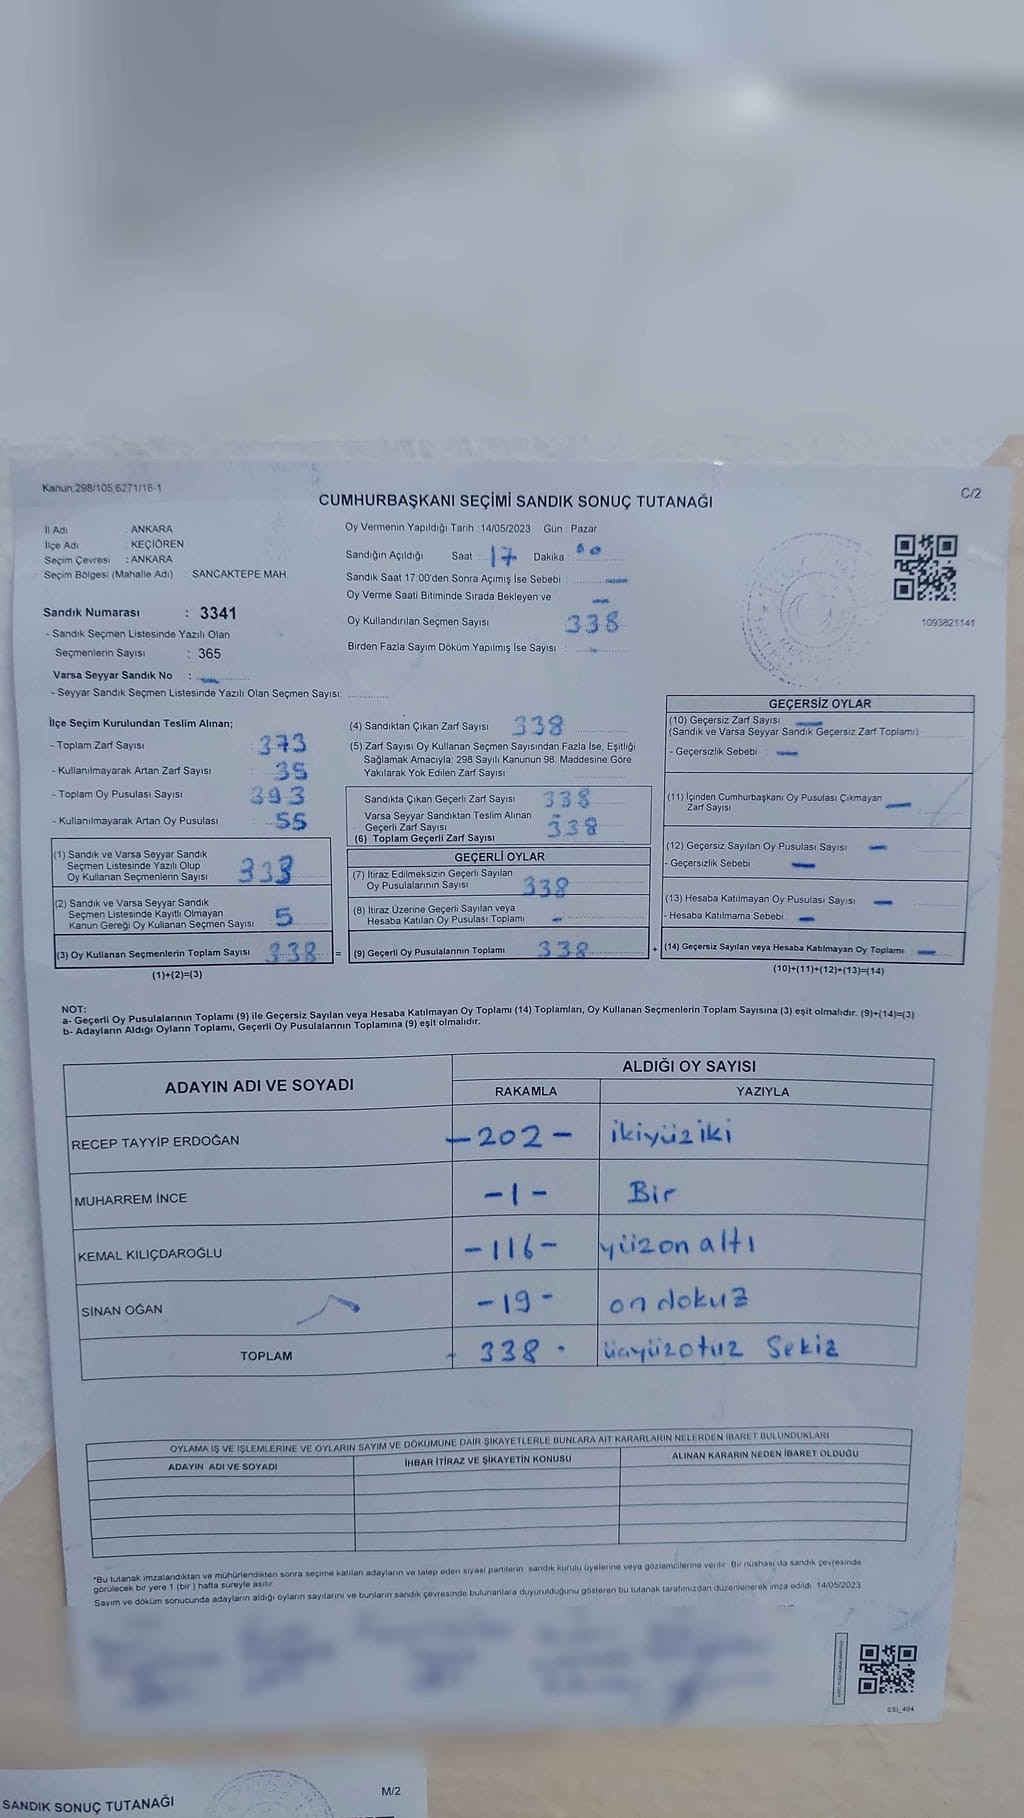 Kanun;298/105,6271/18-1
C/2
CUMHURBAŞKANI SEÇİMİ SANDIK SONUÇ TUTANAĞI
İl Adı ANKARA
İlçe Adı : KEÇİÖREN
Seçim Çevresi : ANKARA
Seçim Bölgesi (Mahalle Adı) : SANCAKTEPE MAH.
Sandık Numarası : 3341
- Sandık Seçmen Listesinde Yazılı Olan
Seçmenlerin Sayısı : 365
Varsa Seyyar Sandık No : —
- Seyyar Sandık Seçmen Listesinde Yazılı Olan Seçmen Sayısı:
Oy Vermenin Yapıldığı Tarih : 14/05/2023 Gün : Pazar
Sandığın Açıldığı Saat : 17 Dakika : 00
Sandık Saat 17:00'den Sonra Açımış İse Sebebi : —
Oy Verme Saati Bitiminde Sırada Bekleyen ve —
Oy Kullandırılan Seçmen Sayısı 338
Birden Fazla Sayım Döküm Yapılmış İse Sayısı :
1093821141
İlçe Seçim Kurulundan Teslim Alınan;
- Toplam Zarf Sayısı : 373
- Kullanılmayarak Artan Zarf Sayısı : 35
- Toplam Oy Pusulası Sayısı : 393
- Kullanılmayarak Artan Oy Pusulası : 55
(1) Sandık ve Varsa Seyyar Sandık
Seçmen Listesinde Yazılı Olup
Oy Kullanan Seçmenlerin Sayısı 333
(2) Sandık ve Varsa Seyyar Sandık
Seçmen Listesinde Kayıtlı Olmayan
Kanun Gereği Oy Kullanan Seçmen Sayısı 5
(3) Oy Kullanan Seçmenlerin Toplam Sayısı 338 =
(1)+(2)=(3)
(4) Sandıktan Çıkan Zarf Sayısı 338
(5) Zarf Sayısı Oy Kullanan Seçmen Sayısından Fazla İse, Eşitliği
Sağlamak Amacıyla; 298 Sayılı Kanunun 98. Maddesine Göre
Yakılarak Yok Edilen Zarf Sayısı :
Sandıkta Çıkan Geçerli Zarf Sayısı 338
Varsa Seyyar Sandıktan Teslim Alınan —
Geçerli Zarf Sayısı
(6) Toplam Geçerli Zarf Sayısı 338
GEÇERLİ OYLAR
(7) İtiraz Edilmeksizin Geçerli Sayılan
Oy Pusulalarının Sayısı 338
(8) İtiraz Üzerine Geçerli Sayılan veya
Hesaba Katılan Oy Pusulası Toplamı —
(9) Geçerli Oy Pusulalarının Toplamı 338 +
GEÇERSİZ OYLAR
(10) Geçersiz Zarf Sayısı —
(Sandık ve Varsa Seyyar Sandık Geçersiz Zarf Toplamı)
- Geçersizlik Sebebi : —
(11) İçinden Cumhurbaşkanı Oy Pusulası Çıkmayan
Zarf Sayısı —
(12) Geçersiz Sayılan Oy Pusulası Sayısı —
- Geçersizlik Sebebi —
(13) Hesaba Katılmayan Oy Pusulası Sayısı —
- Hesaba Katılmama Sebebi —
(14) Geçersiz Sayılan veya Hesaba Katılmayan Oy Toplamı —
(10)+(11)+(12)+(13)=(14)
NOT:
a- Geçerli Oy Pusulalarının Toplamı (9) ile Geçersiz Sayılan veya Hesaba Katılmayan Oy Toplamı (14) Toplamları, Oy Kullanan Seçmenlerin Toplam Sayısına (3) eşit olmalıdır. (9)+(14)=(3)
b- Adayların Aldığı Oyların Toplamı, Geçerli Oy Pusulalarının Toplamına (9) eşit olmalıdır.
ADAYIN ADI VE SOYADI
ALDIĞI OY SAYISI
RAKAMLA YAZIYLA
RECEP TAYYİP ERDOĞAN - 202 - ikiyüziki
MUHARREM İNCE - 1 - Bir
KEMAL KILIÇDAROĞLU - 116 - yüzonaltı
SİNAN OĞAN - 19 - ondokuz
TOPLAM - 338 - üçyüzotuz Sekiz
OYLAMA İŞ VE İŞLEMLERİNE VE OYLARIN SAYIM VE DÖKÜMÜNE DAİR ŞİKAYETLERLE BUNLARA AİT KARARLARIN NELERDEN İBARET BULUNDUKLARI
ADAYIN ADI VE SOYADI İHBAR İTİRAZ VE ŞİKAYETİN KONUSU ALINAN KARARIN NEDEN İBARET OLDUĞU
*Bu tutanak imzalandıktan ve mühürlendikten sonra seçime katılan adayların ve talep eden siyasi partilerin sandık kurulu üyelerine veya gözlemcilerine verilir. Bir nüshası da sandık çevresinde
görülecek bir yere 1 (bir) hafta süreyle asılır.
Sayım ve döküm sonucunda adayların aldığı oyların sayılarını ve bunların sandık çevresinde bulunanlara duyurulduğunu gösteren bu tutanak tarafımızdan düzenlenerek imza edildi. 14/05/2023
SSI_404
M/2
SANDIK SONUÇ TUTANAĞI